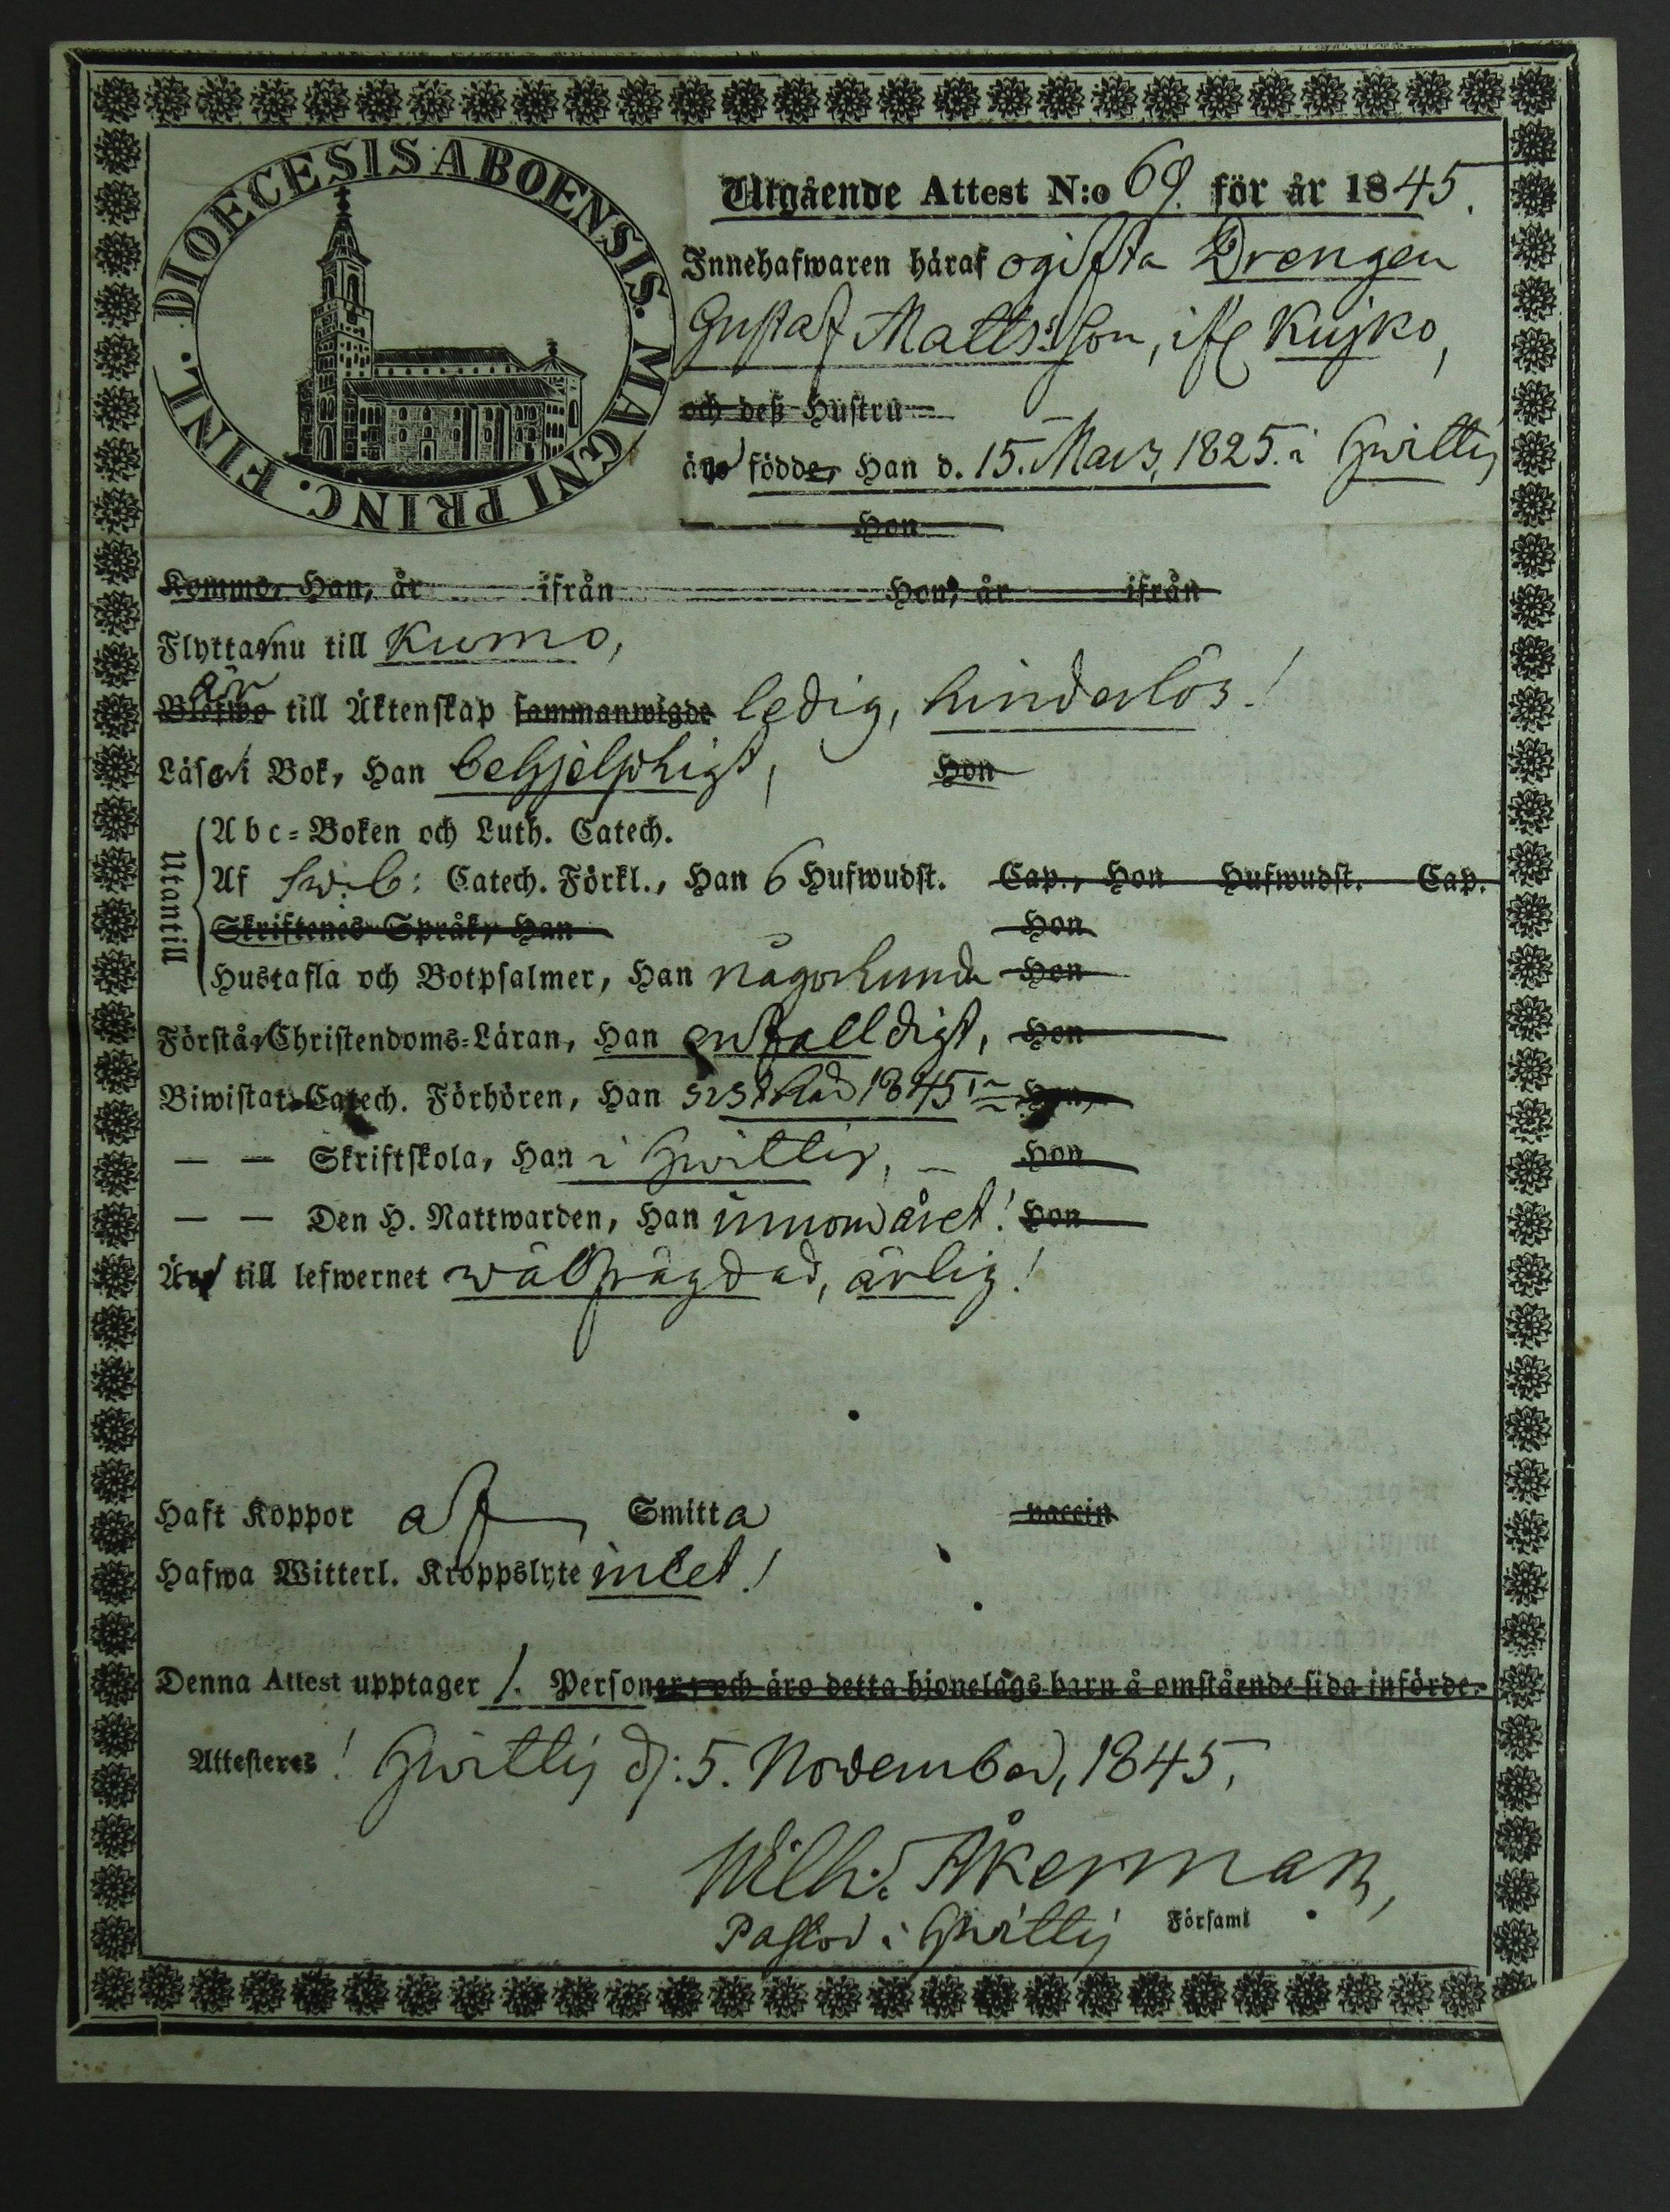 DIOECESIS ABOENSIS. MAGNI PRINC. FINL.
Utgående Attest N:o 69. för år 1845.
Innehafwaren häraf ogiffta Drengen
Gustaf Matts:Son, ifr Kujko,
och deß Hustru
äro födde, Han d. 15. Mars, 1825. i Hwittis
Hon
Komme, Han, år ifrån Hon, år ifrån
Flyttar nu till Kumo,
är
Blefwo till Äktenskap sammanwigde ledig, hinderlös!
Läser i Bok, Han behjelpligt, Hon
Utantill
Abc-Boken och Luth. Catech.
Af Catech. Förkl., Han 6 Hufwudst. Cap., Hon Hufwudst. Cap.
Skriftenes Språk, Han Hon
Hustafla och Botpsalmer, Han någorlunda Hon
Förstår Christendoms-Läran, Han enfalldigt, Hon
Biwistat Catech. Förhören, Han sist 1845, Hon,
— — Skriftskola, Han i Hwittis, – Hon
— — Den H. Nattwarden, Han innom året! Hon
Är till lefwernet wälfrägdad, ärlig!
Haft Koppor af Smitta vaccin
Hafwa Witterl. Kroppslyte intet!
Denna Attest upptager 1. Personer, och äro detta hjonelags barn å omstående sida införde.
Attesteres! Hwittis d: 5. November, 1845.
Wilh: Åkerman,
Pastor i Hwittis Församl